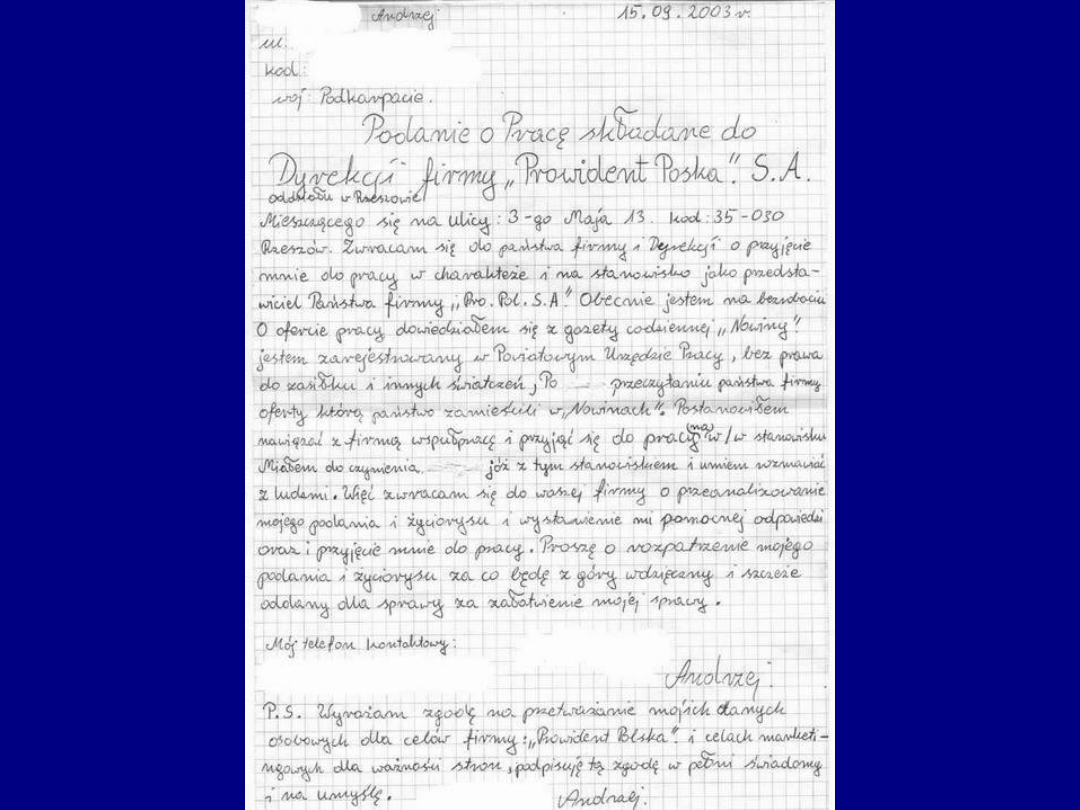 Andrzej 15.09.2003 r.
ul.
kod:
woj: Podkarpacie.
Podanie o Pracę składane do
Dyrekcji firmy „Prowident Poska". S.A.
oddziału w Rzeszowie
Mieszczącego się na ulicy: 3-go Maja 13. kod: 35-030
Rzeszów. Zwracam się do państwa firmy i Dyrekcji o przyjęcie
mnie do pracy w charakteże i na stanowisko jako przedsta-
wiciel Państwa firmy „Pro. Pol. S.A." Obecnie jestem na bezrobociu
O ofercie pracy dowiedziałem się z gazety codziennej „Nowiny".
jestem zarejestrowany w Powiatowym Urzędzie Pracy, bez prawa
do zasiłku i innych świadczeń, Po przeczytaniu państwa firmy
oferty którą państwo zamieścili w „Nowinach". Postanowiłem
nawiązać z firmą współpracę i przyjąć się do pracy (na) w/w stanowisku
Miałem do czynienia jóż z tym stanowiskiem i umiem rozmawiać
z ludzmi. Więć zwracam się do waszej firmy o przeanalizowanie
mojego podania i życiorysu i wystawienie mi pomocnej odpowiedzi
oraz i przyjęcie mnie do pracy. Proszę o rozpatrzenie mojego
podania i życiorysu za co będę z góry wdzięczny i szczeże
oddany dla sprawy za załatwienie mojej sprawy.
Mój telefon kontaktowy:
Andrzej.
P.S. Wyrażam zgodę na przetważanie mojich danych
osobowych dla celów firmy: „Prowident Polska". i celach marketi-
ngowych dla ważności stron, podpisuję tą zgodę w pełni świadomy
i na umyślę.
Andrzej.